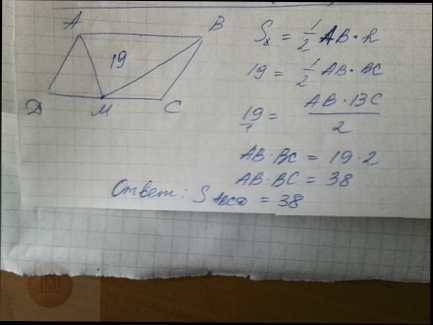 A B
19
D M C
S△ = 1/2 AB · h
19 = 1/2 AB · BC
19/1 = AB · BC / 2
AB · BC = 19 · 2
AB · BC = 38
Ответ: S ABCD = 38